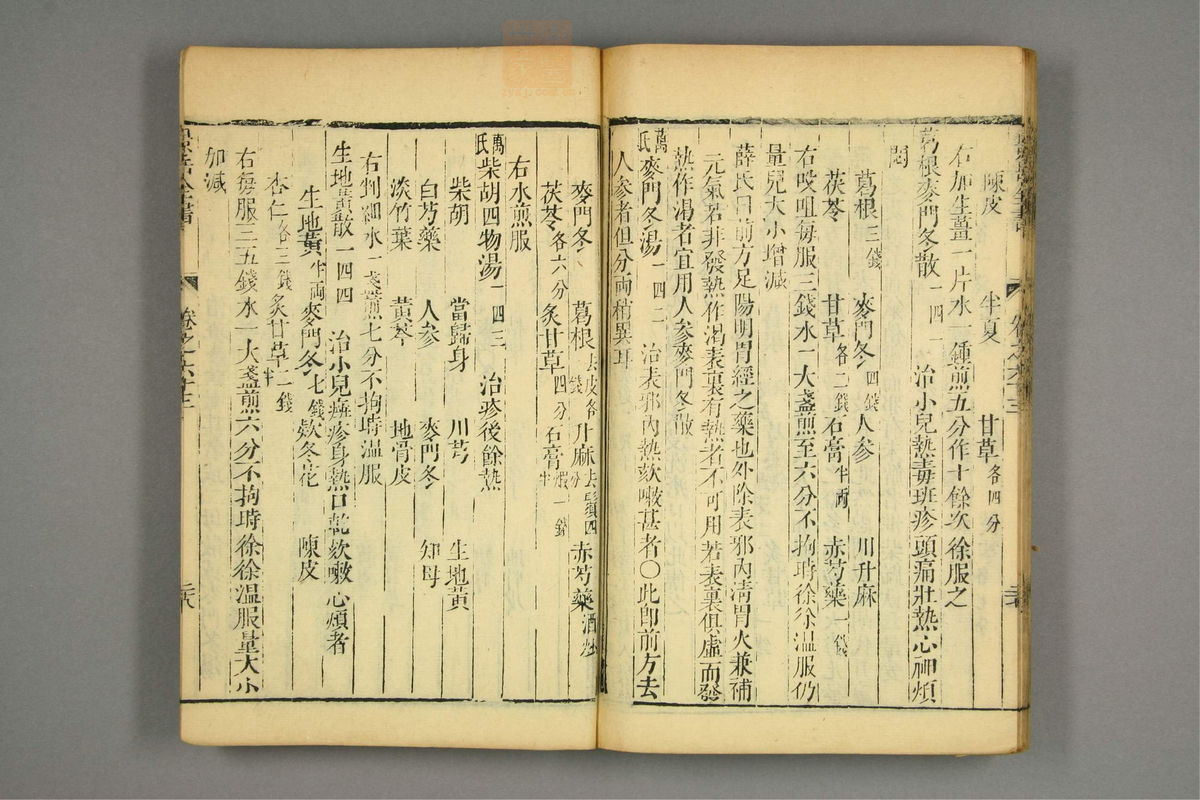 陳皮 半夏 甘草各四分
右加生薑一片水一鍾煎五分作十餘次徐服之
葛根麥門冬散一四一 治小兒熱毒班疹頭痛壯熱心神煩
悶
葛根三錢 麥門冬四錢 人參 川升麻
茯苓 甘草各二錢 石膏半兩 赤芍藥一錢
右㕮咀每服三錢水一大盞煎至六分不拘時徐徐溫服仍
量兒大小增減
薛氏曰前方足陽明胃經之藥也外除表邪內清胃火兼補
元氣若非發熱作渴表裏有熱者不可用若表裏俱虛而發
熱作渴者宜用人參麥門冬散
萬氏麥門冬湯一四二 治表邪內熱欬嗽甚者〇此卽前方去
人參者但分兩稍異耳
麥門冬 葛根去皮各錢 升麻去鬚四分 赤芍藥酒炒
茯苓各六分 炙甘草四分 石膏煆一錢半
右水煎服
萬氏柴胡四物湯一四三 治疹後餘熱
柴胡 當歸身 川芎 生地黃
白芍藥 人參 麥門冬 知母
淡竹葉 黃芩 地骨皮
右判細水一盞煎七分不拘時溫服
生地黃散一四四 治小兒痲疹身熱口乾欬嗽心煩者
生地黃半兩 麥門冬七錢 欵冬花 陳皮
杏仁各三錢 炙甘草二錢半
右每服三五錢水一大盞煎六分不拘時徐徐溫服量大小
加減
景岳全書 卷之六十三